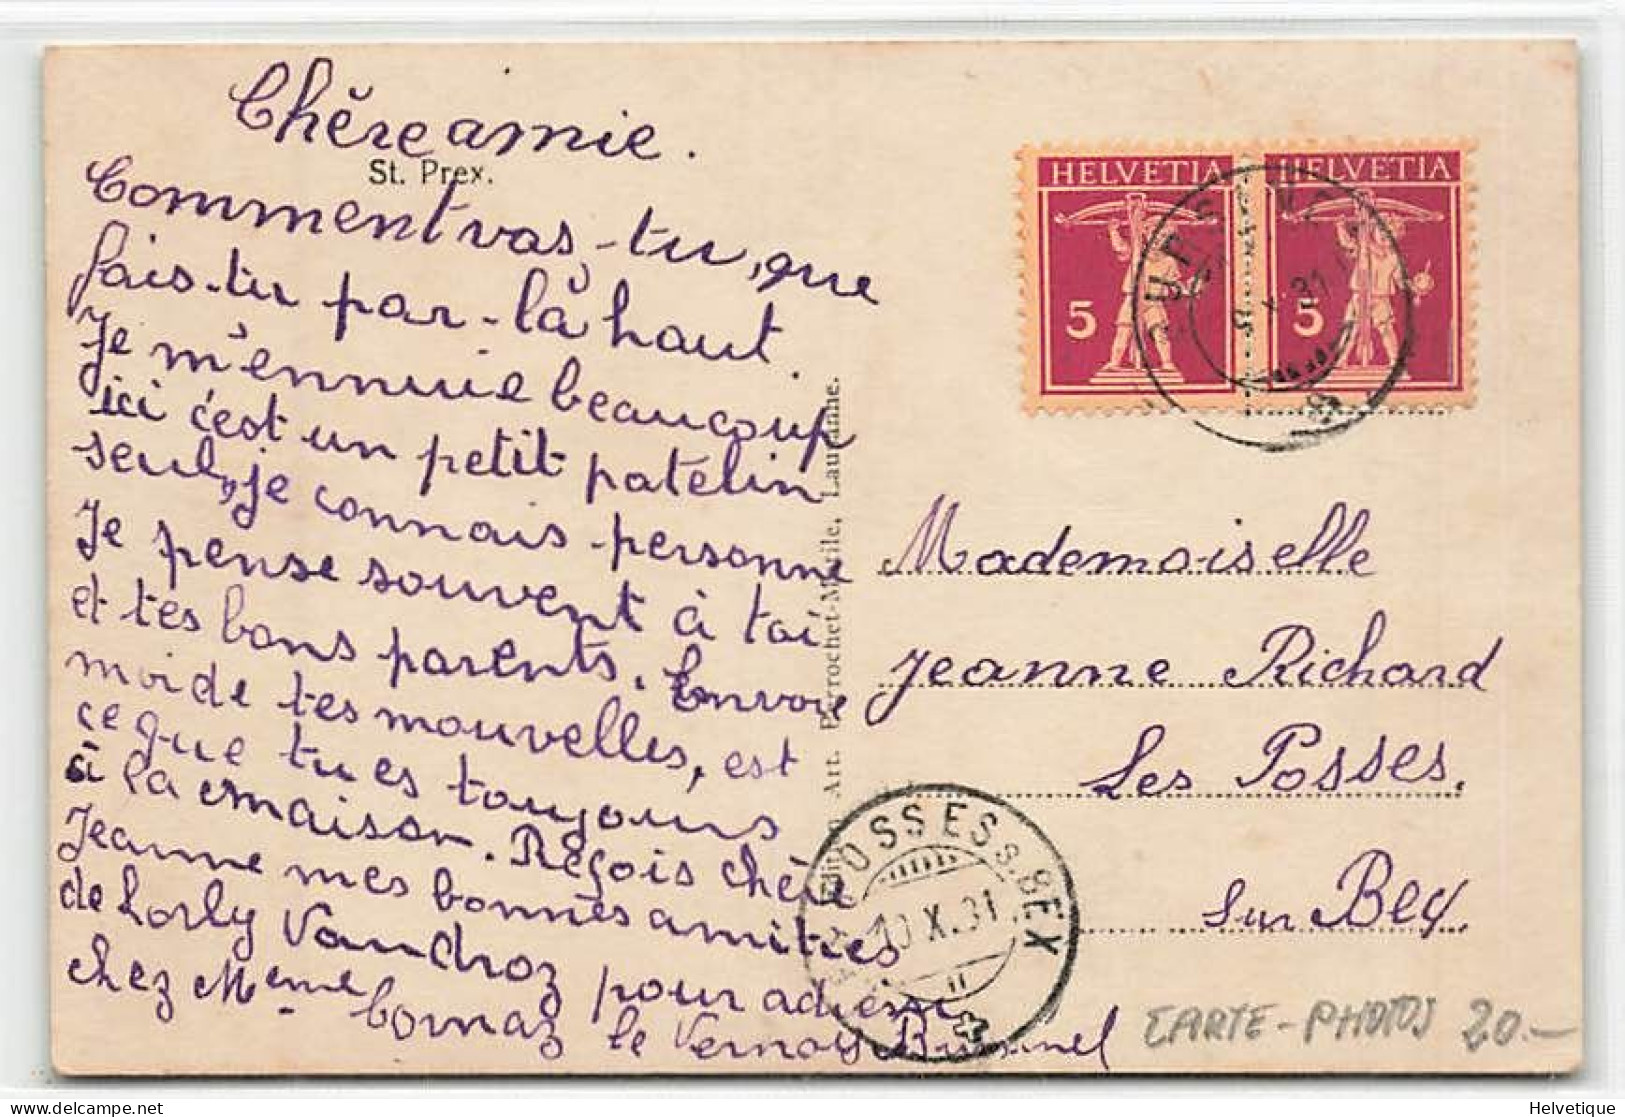 Chère amie.
St. Prex.
Comment vas-tu, que
fais-tu par-là haut.
Je m'ennuie beaucoup
ici c'est un petit patelin
seul, je connais personne
Je pense souvent à toi
et tes bons parents. Envoie
moi de tes nouvelles, est
ce que tu es toujours
à la maison. Reçois chère
Jeanne mes bonnes amitiés
de Lorly Vaudroz pour adresse
chez Mme Cornaz le Vernay
HELVETIA HELVETIA
5 5
31
Edition Art. Perrochet-Matile, Lausanne.
Mademoiselle
Jeanne Richard
Les Posses.
sur Bex.
POSSES s. BEX
10.X.31
CARTE-PHOTOS 20.-
Helvetique